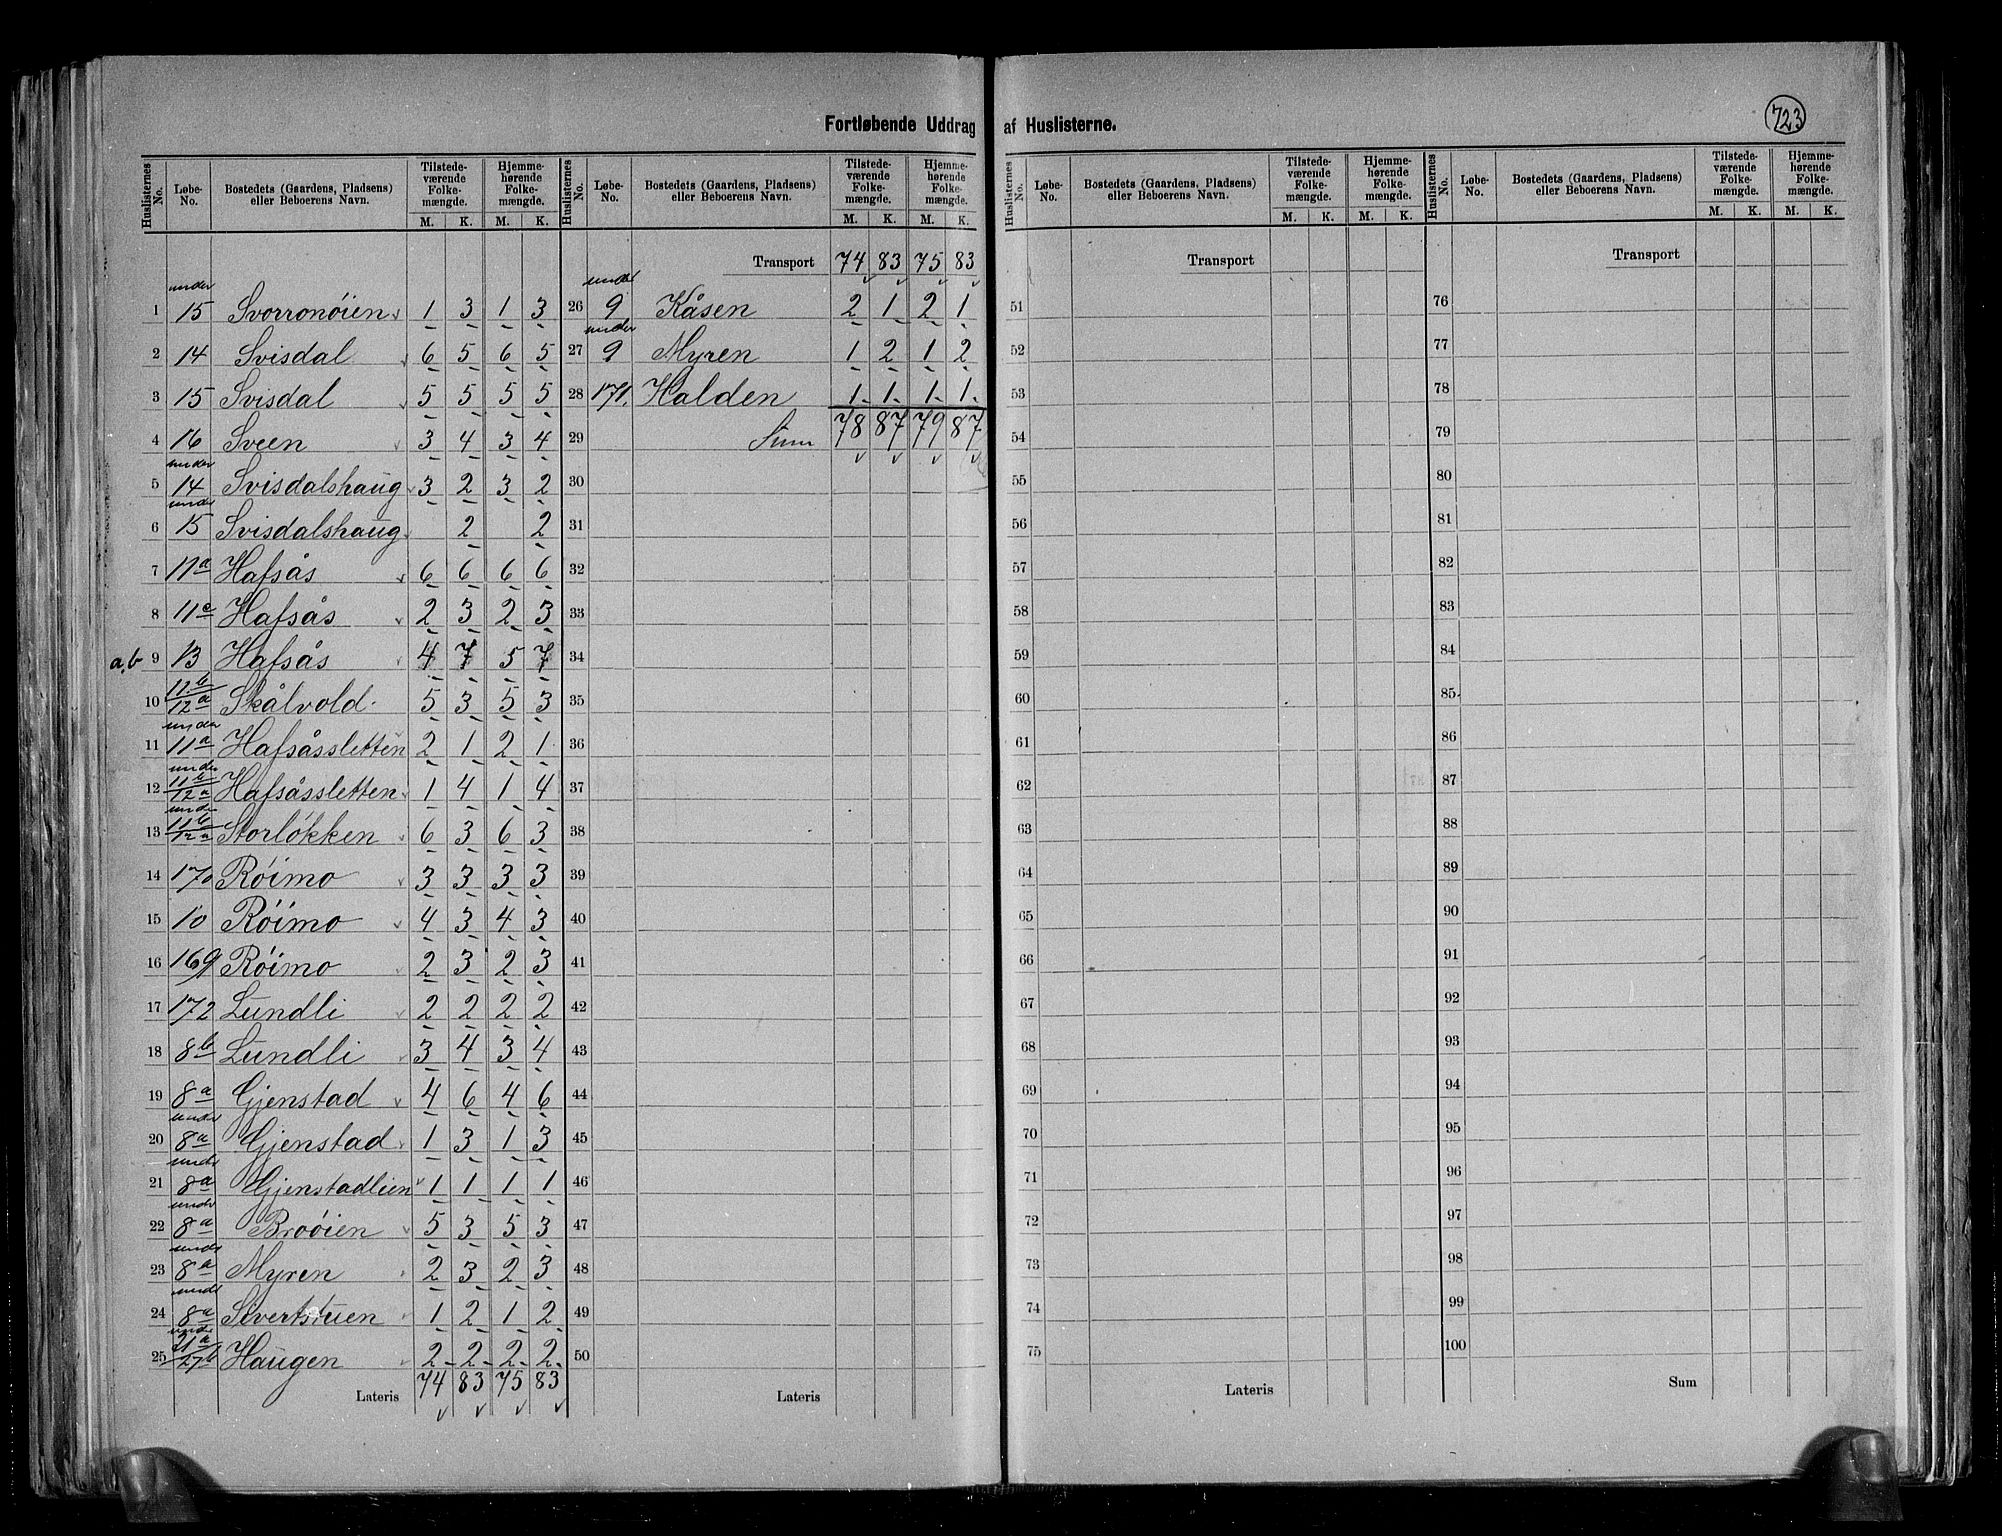 Fortløbende Uddrag af Huslisterne.
723
Huslisternes No. | Løbe-No. | Bostedets (Gaardens, Pladsens) eller Beboerens Navn. | Tilstedeværende Folkemængde. M. K. | Hjemmehørende Folkemængde. M. K.
1 under 15 Svorronöien 1 3 1 3
2 14 Svisdal 6 5 6 5
3 15 Svisdal 5 5 5 5
4 16 Sveen 3 4 3 4
5 under 14 Svisdalshaug 3 2 3 2
6 under 15 Svisdalshaug 2 2
7 11a Hafsås 6 6 6 6
8 11c Hafsås 2 3 2 3
a,b 9 13 Hafsås 4 7 5 7
10 11b/12a Skålvold 5 3 5 3
11 under 11a Hafsåssletten 2 1 2 1
12 under 11b/12a Hafsåssletten 1 4 1 4
13 under 11b/12a Storlökken 6 3 6 3
14 170 Röimo 3 3 3 3
15 10 Röimo 4 3 4 3
16 169 Röimo 2 3 2 3
17 172 Lundli 2 2 2 2
18 8b Lundli 3 4 3 4
19 8a Gjenstad 4 6 4 6
20 under 8a Gjenstad 1 3 1 3
21 under 8a Gjenstadlien 1 1 1 1
22 under 8a Broöien 5 3 5 3
23 under 8a Myren 2 3 2 3
24 under 8a Sivertstuen 1 2 1 2
25 under Haugen 2 2 2 2
Lateris 74 83 75 83
Huslisternes No. | Løbe-No. | Bostedets (Gaardens, Pladsens) eller Beboerens Navn. | Tilstedeværende Folkemængde. M. K. | Hjemmehørende Folkemængde. M. K.
Transport 74 83 75 83
26 under 9 Kåsen 2 1 2 1
27 under 9 Myren 1 2 1 2
28 171. Halden 1 1 1 1
29 Sum 78 87 79 87
30
31
32
33
34
35
36
37
38
39
40
41
42
43
44
45
46
47
48
49
50
Lateris
Huslisternes No. | Løbe-No. | Bostedets (Gaardens, Pladsens) eller Beboerens Navn. | Tilstedeværende Folkemængde. M. K. | Hjemmehørende Folkemængde. M. K.
Transport
51
52
53
54
55
56
57
58
59
60
61
62
63
64
65
66
67
68
69
70
71
72
73
74
75
Lateris
Huslisternes No. | Løbe-No. | Bostedets (Gaardens, Pladsens) eller Beboerens Navn. | Tilstedeværende Folkemængde. M. K. | Hjemmehørende Folkemængde. M. K.
Transport
76
77
78
79
80
81
82
83
84
85
86
87
88
89
90
91
92
93
94
95
96
97
98
99
100
Sum